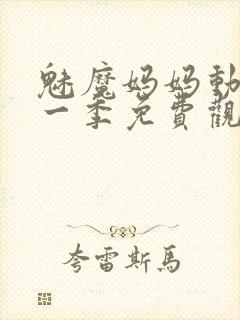 魅魔妈妈動
一季免費觀
夸雷斯馬